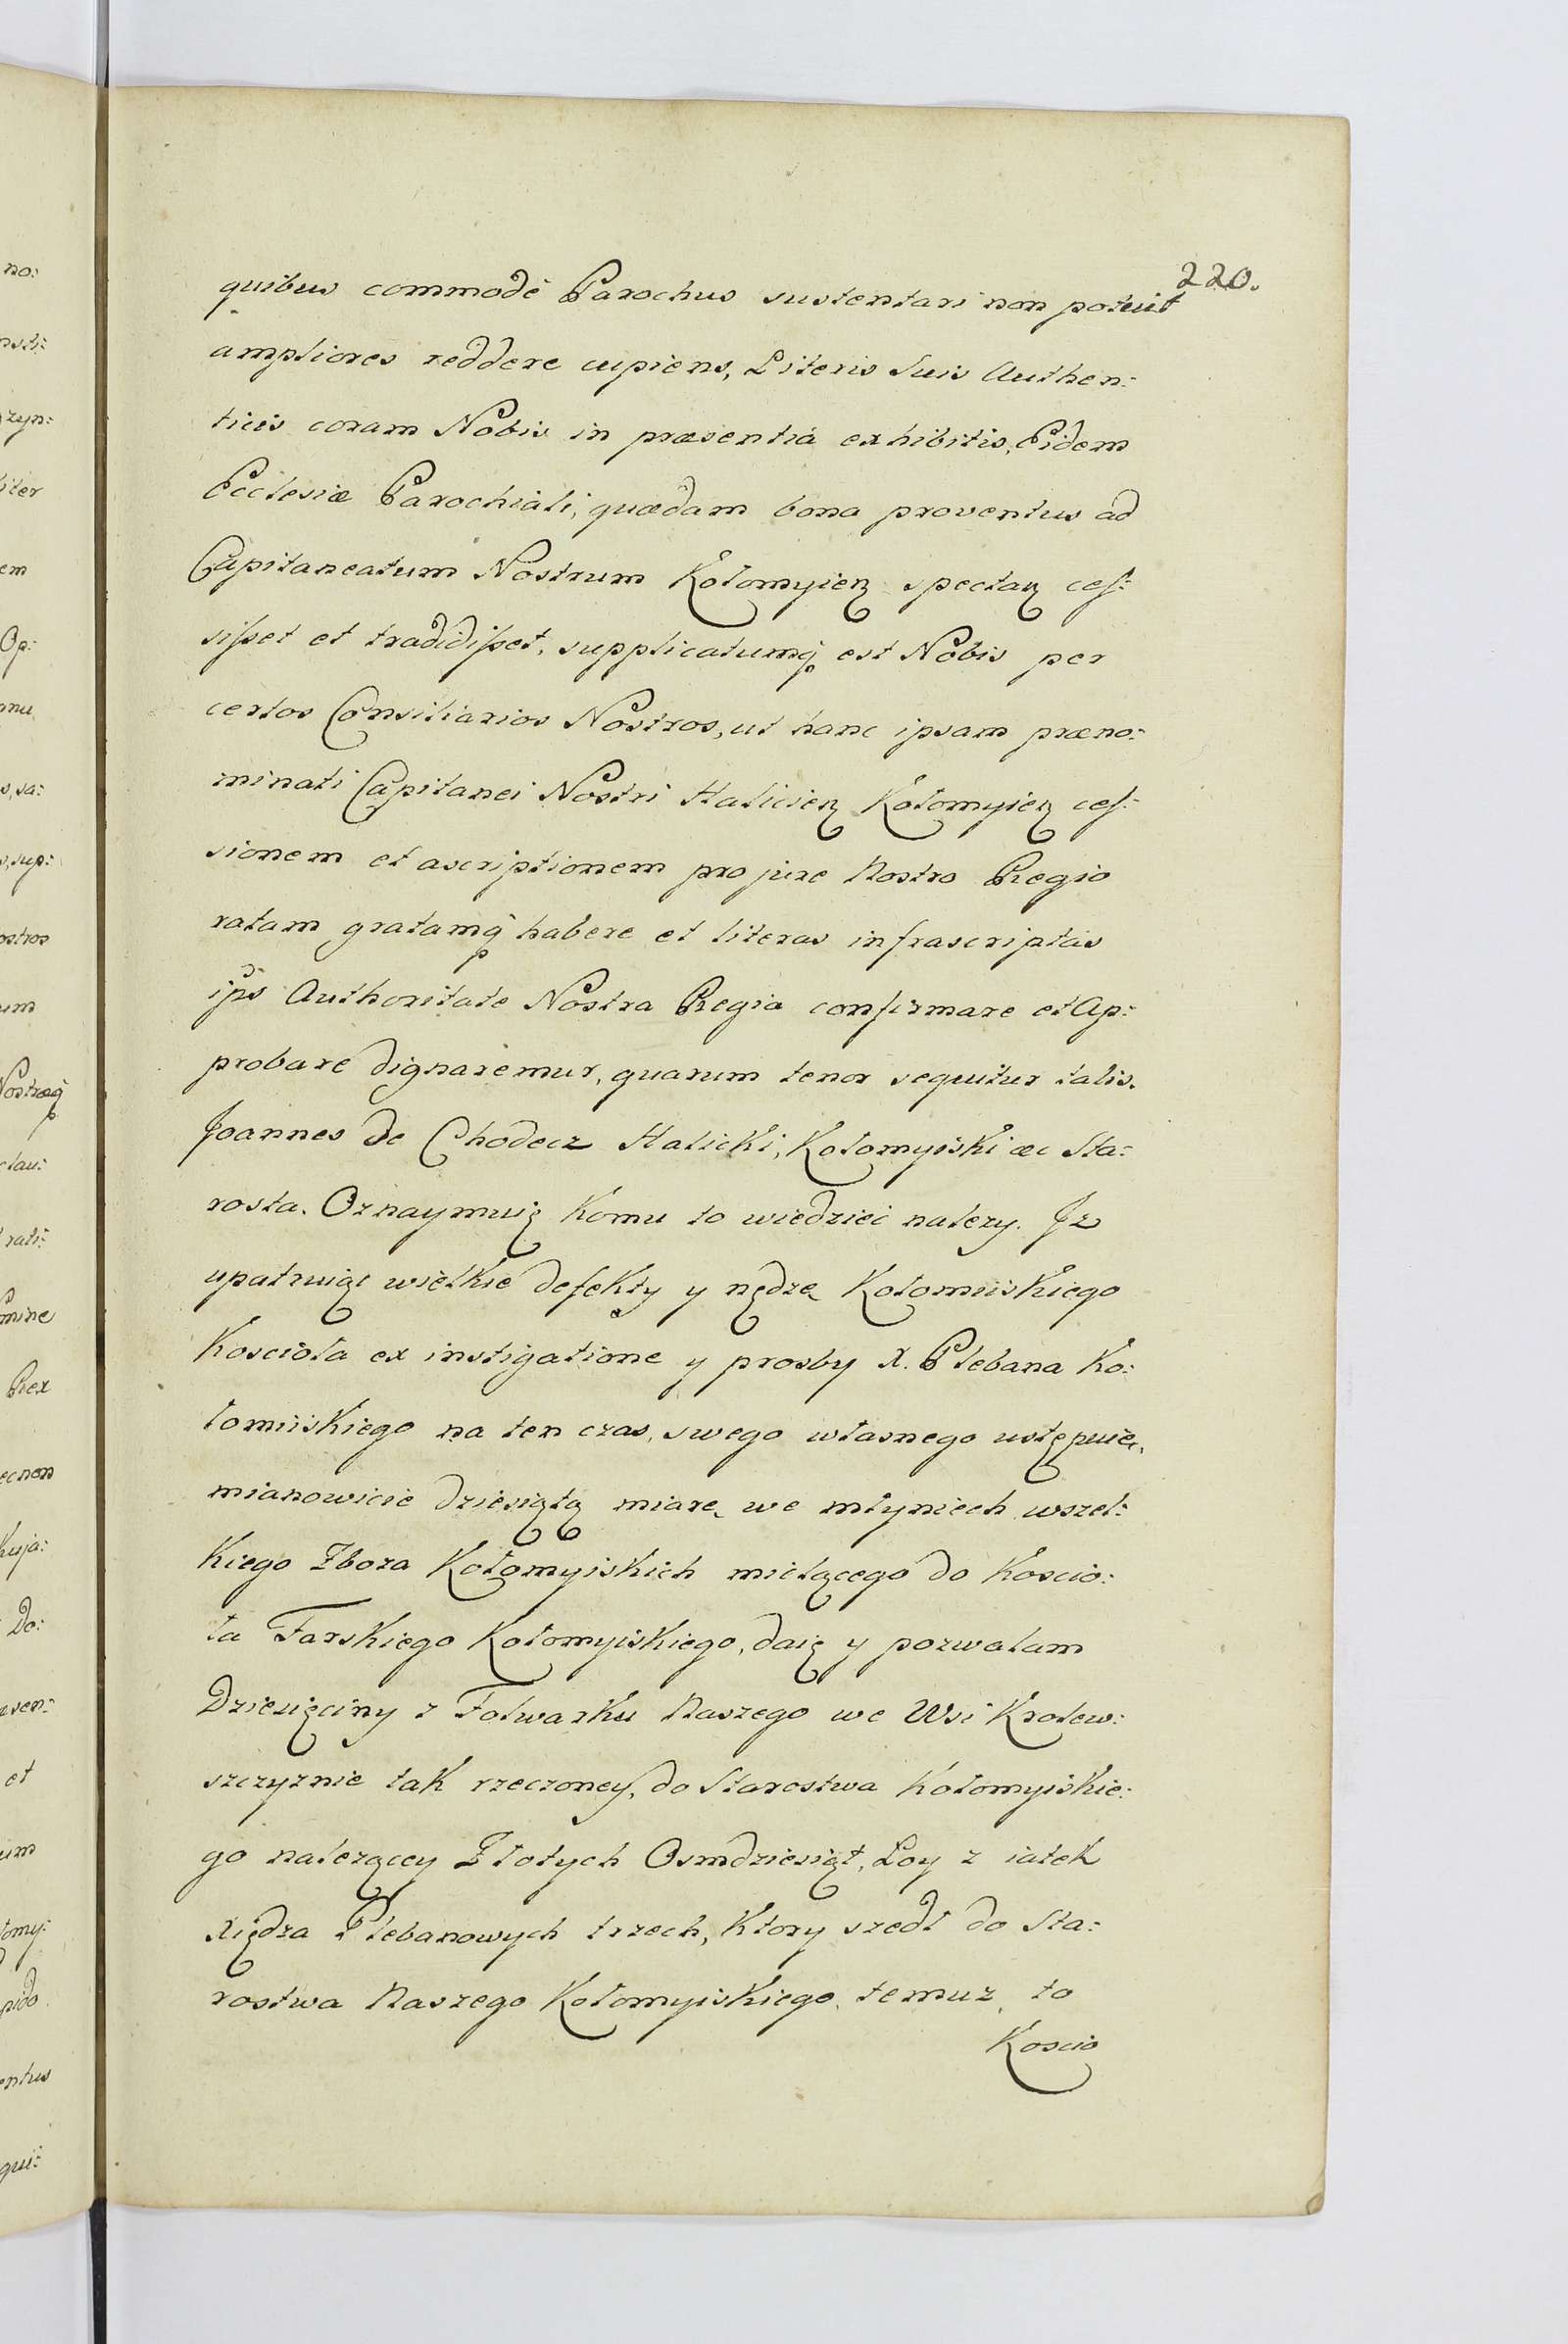 220.
quibus commodè Parochus sustentari non potuit
ampliores reddere cupiens, Literis Suis Authen:
ticis coram Nobis in præsentiá exhibitis, Eidem
Ecclesiæ Parochiali, quædam bona proventus ad
Capitaneatum Nostrum Kołomyień spectań ces:
sisset et tradidisset, supplicatumq́ est Nobis per
certos Consiliarios Nostros, ut hanc ipsam præno:
minati Capitanei Nostri Halicień Kołomyień ces:
sionem et ascriptionem pro jure Nostro Regio
ratam gratamq́ habere et literas infrascriptas
ips Authoritate Nostra Regia confirmare et Ap:
probare dignaremur, quarum tenor sequitur talis.
Joannes de Chodecz Halicki, Kołomyiski &c Sta:
rosta. Oznaymuię komu to wiedzieć nalezy. Jz
upatruiąc wielkie defekty y nędzę Kołomiiskiego
Kościoła ex instigatione y prosby X. Plebana Ko:
łomiiskiego na ten czas, swego własnego ustępuię,
mianowicie dziesiątą miarę we młyniech wszel:
kiego Zboza Kołomyiskich mielącego do Koscio:
ła Farskiego Kołomyiskiego, daię y pozwalam
Dziesięciny z Folwarku Naszego we Wsi Krolew:
szczyznie tak rzeczoney, do Starostwa Kołomyiskie:
go nalezącey Złotych Osmdziesiąt, Łoy z iatek
Xiędza Plebanowych trzech, ktory szedł do Sta:
rostwa Naszego Kołomyiskiego, temuz, to
Koscio
no:
nsti:
zyn:
liter
em
Op:
s, sa:
s, sup:
ostros
um
Nostraq́
clau:
rati:
mine
Rex
ecnon
Kuja:
Do:
et
um
łomy:
pido
entus
qui: